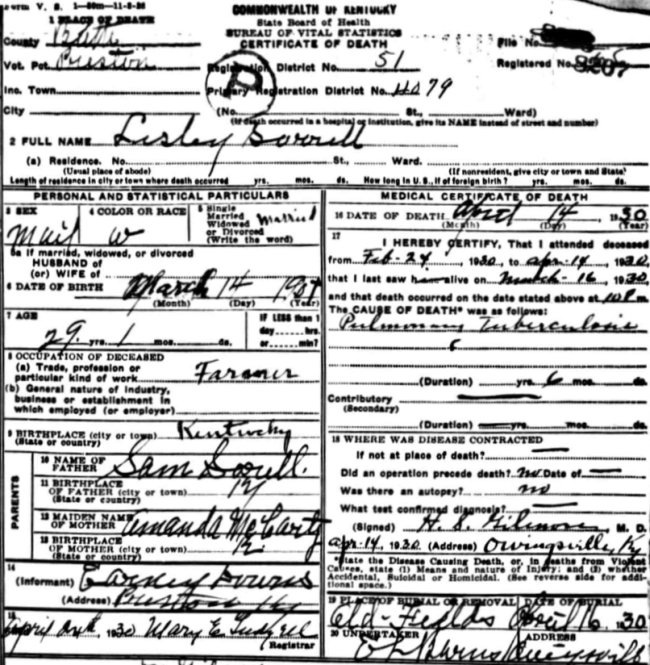 Form V. S. 1—50m—11-3-28
COMMONWEALTH OF KENTUCKY
State Board of Health
BUREAU OF VITAL STATISTICS
CERTIFICATE OF DEATH
1 PLACE OF DEATH
County Bath
Vot. Pct. Preston
Inc. Town
City
File No.
Registered No. 8207
Registration District No. 51
Primary Registration District No. 4079
(No. St., Ward)
(If death occurred in a hospital or institution, give its NAME instead of street and number)
2 FULL NAME Lesley Sorrell
(a) Residence. No. St., Ward.
(Usual place of abode) (If nonresident, give city or town and State)
Length of residence in city or town where death occurred yrs. mos. ds. How long in U. S., if of foreign birth? yrs. mos. ds.
PERSONAL AND STATISTICAL PARTICULARS
3 SEX Mail
4 COLOR OR RACE W
5 Single Married Widowed or Divorced (Write the word) Married
5a If married, widowed, or divorced
HUSBAND of
(or) WIFE of
6 DATE OF BIRTH March 14
(Month) (Day) (Year)
7 AGE
29 yrs. 1 mos. ds.
IF LESS than 1
day hrs.
or min?
8 OCCUPATION OF DECEASED
(a) Trade, profession or
particular kind of work Farmer
(b) General nature of industry,
business or establishment in
which employed (or employer)
9 BIRTHPLACE (city or town) Kentucky
(State or country)
PARENTS
10 NAME OF
FATHER Sam Sorrell
11 BIRTHPLACE
OF FATHER (city or town) Ky
(State or country)
12 MAIDEN NAME
OF MOTHER Amanda McCarty
13 BIRTHPLACE
OF MOTHER (city or town) Ky
(State or country)
14
(Informant)
(Address) Preston Ky
15
April 1930 Mary E
Registrar
MEDICAL CERTIFICATE OF DEATH
16 DATE OF DEATH April 14 1930
(Month) (Day) (Year)
17
I HEREBY CERTIFY, That I attended deceased
from Feb-24, 1930 to apr-14, 1930
that I last saw alive on March-16, 1930,
and that death occurred on the date stated above at m.
The CAUSE OF DEATH* was as follows:
Pulmonary Tuberculosis
(Duration) yrs. 6 mos. ds.
Contributory
(Secondary)
(Duration) yrs. mos. ds.
18 WHERE WAS DISEASE CONTRACTED
If not at place of death?
Did an operation precede death? no Date of
Was there an autopsy? no
What test confirmed diagnosis?
(Signed) H. S. Gilmore, M. D.
apr-14, 1930 (Address) Owingsville, Ky
*State the Disease Causing Death, or, in deaths from Violent
Causes, state (1) Means and nature of Injury; and (2) whether
Accidental, Suicidal or Homicidal. (See reverse side for addi-
tional space.)
19 PLACE OF BURIAL OR REMOVAL DATE OF BURIAL
Old-Fields April 16 1930
20 UNDERTAKER ADDRESS